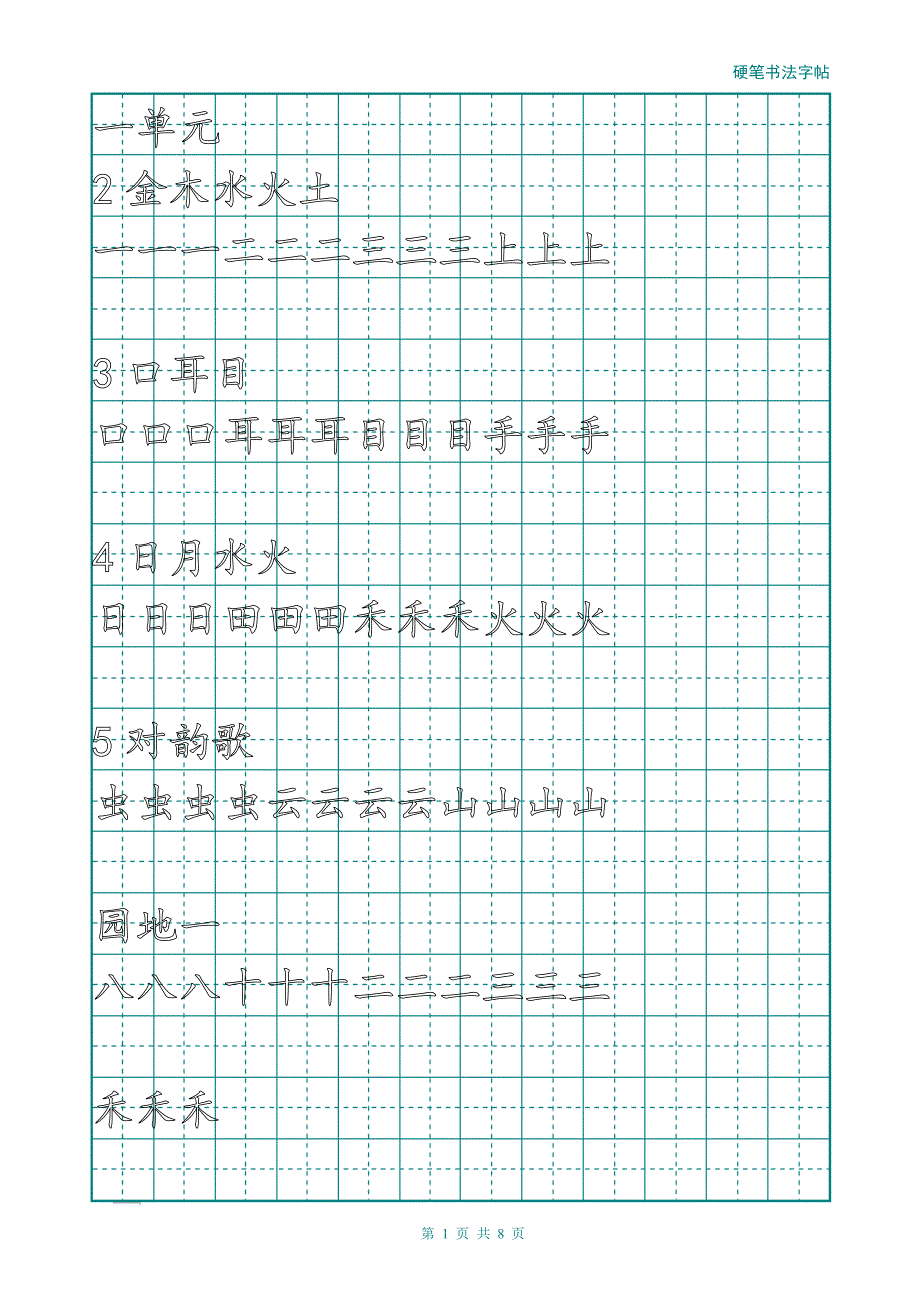 硬笔书法字帖
一单元
2 金木水火土
一一一二二二三三三上上上
3 口耳目
口口口耳耳耳目目目手手手
4 日月水火
日日日田田田禾禾禾火火火
5 对韵歌
虫虫虫虫云云云云山山山山
园地一
八八八十十十二二二三三三
禾禾禾
第 1 页 共 8 页